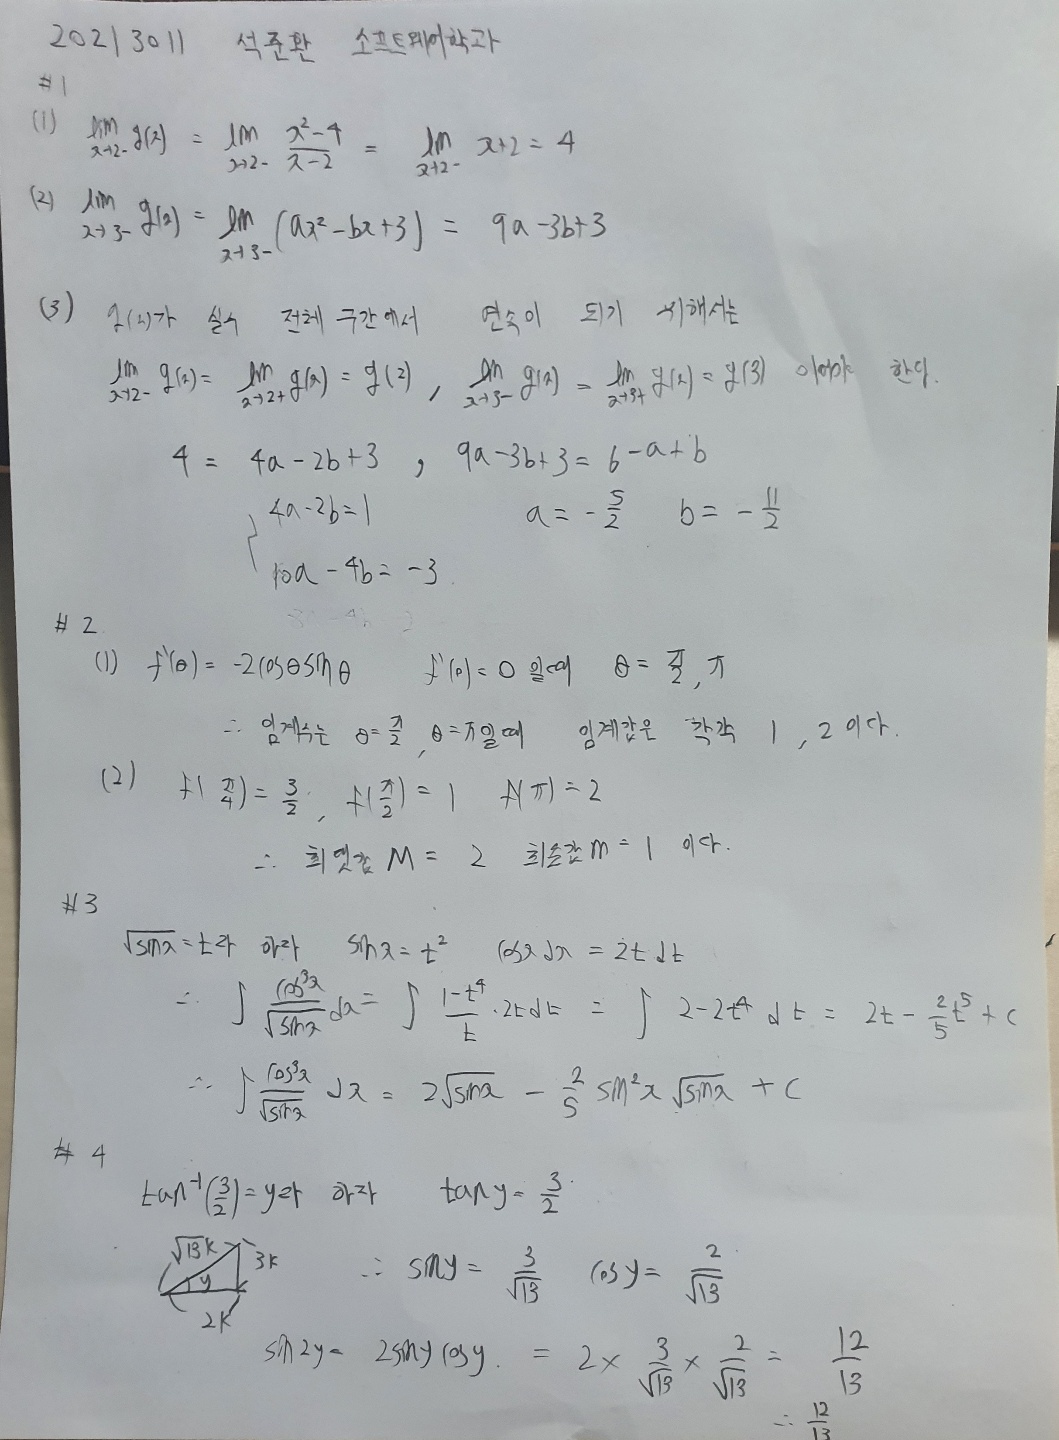 20213011 석준환 소프트웨어학과
#1
(1) lim x→2- g(x) = lim x→2- (x²-4)/(x-2) = lim x→2- x+2 = 4
(2) lim x→3- g(x) = lim x→3- (ax²-bx+3) = 9a-3b+3
(3) g(x)가 실수 전체 구간에서 연속이 되기 위해서는
lim x→2- g(x) = lim x→2+ g(x) = g(2), lim x→3- g(x) = lim x→3+ g(x) = g(3) 이어야 한다.
4 = 4a-2b+3, 9a-3b+3 = 6-a+b
4a-2b=1 a = -5/2 b = -11/2
10a-4b = -3
#2
(1) f'(θ) = -2cosθsinθ f'(θ)=0 일때 θ = π/2, π
∴ 임계수는 θ=π/2, θ=π일때 임계값은 각각 1, 2 이다.
(2) f(π/4) = 3/2, f(π/2) = 1 f(π) = 2
∴ 최댓값 M = 2 최솟값 m = 1 이다.
#3
√sinx = t라 하자 sinx = t² cosxdx = 2tdt
∴ ∫ cos³x/√sinx dx = ∫ (1-t⁴)/t · 2tdt = ∫ 2-2t⁴ dt = 2t - 2/5 t⁵ + c
∴ ∫ cos³x/√sinx dx = 2√sinx - 2/5 sin²x √sinx + c
#4
tan⁻¹(3/2) = y라 하자 tany = 3/2
√13k 3k y 2k ∴ siny = 3/√13 cosy = 2/√13
sin2y = 2sinycosy. = 2 × 3/√13 × 2/√13 = 12/13
∴ 12/13